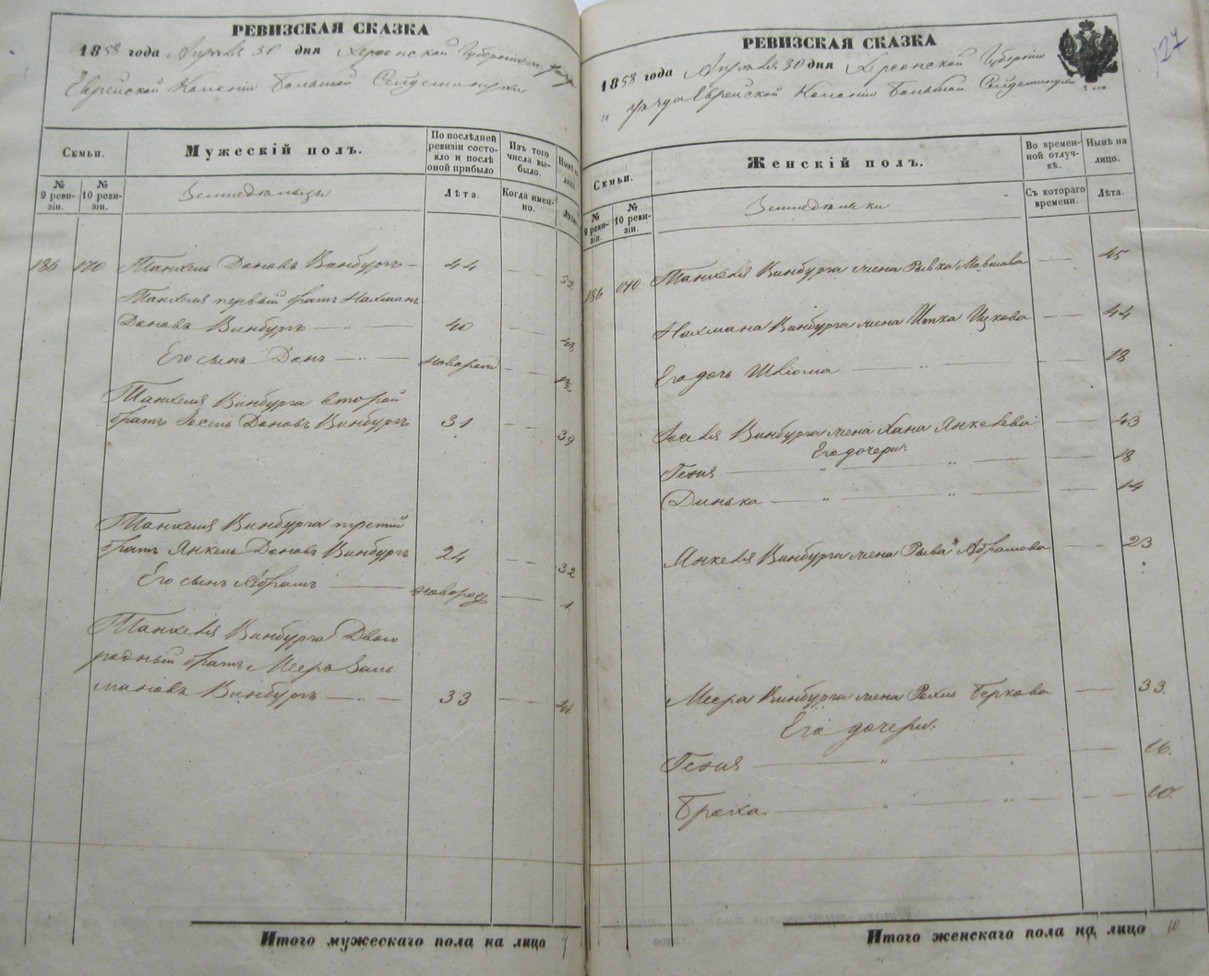 РЕВИЗСКАЯ СКАЗКА
1858 года Апреля 30 дня Херсонской Губерніи
Еврейской Колоніи Большой Сейдеминухи
Семьи.
Мужескій полъ.
По послѣдней ревизіи состояло и послѣ оной прибыло
Изъ того числа выбыло.
Нынѣ на
№ 9 ревизіи.
№ 10 ревизіи.
Земледѣльцы
Лѣта.
Когда именно.
Лѣта.
186 170 Танхель Доновъ Винбургъ — 44 — — 52
Танхеля первый братъ Нахманъ
Доновъ Винбургъ — 40 — — 48
Его сынъ Донъ — новорож — —
Танхеля Винбурга второй
братъ Іосель Доновъ Винбургъ 31 — — 39
Танхеля Винбурга третій
братъ Янкель Доновъ Винбургъ 24 — — 32
Его сынъ Абрамъ — новорож — 1
Танхеля Винбурга Двою
родный братъ Мееръ Заль
мановъ Винбургъ — 33 — — 41
Итого мужескаго пола на лицо 7
РЕВИЗСКАЯ СКАЗКА
127
1858 года Апреля 30 дня Херсонской Губерніи
и уезда Еврейской Колоніи Большой Сейдеминухи
Семьи.
Женскій полъ.
Во временной отлучкѣ.
Нынѣ на лицо.
№ 9 ревизіи.
№ 10 ревизіи.
Земледѣльки
Съ котораго времени.
Лѣта.
186 170 Танхеля Винбурга жена Рывка Мовшова — — 45
Нахмана Винбурга жена Итка Ицкова — — 44
Его дочь — — 18
Іоселя Винбурга жена Хана Янкелева — — 43
Его дочери:
Геня — " " — — 18
Динька — " " — — 14
Янкеля Винбурга жена Рыва Абрамова — — 23
Меера Винбурга жена Рохль Беркова — 33.
Его дочери:
Геня — " — — 16.
Броха — " " — — 10.
Итого женскаго пола на лицо 10